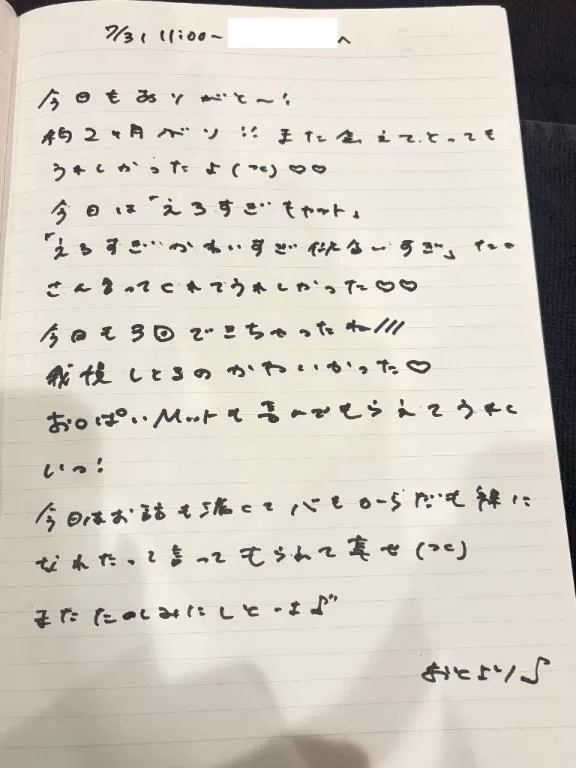 7/31 11:00~ へ
今日もありがと〜!
約2ヶ月ぶり!! また会えて、とっても
うれしかったよ(つc)♡♡
今日は「えろすぎキャット」
「えろすぎかわいすぎ似合いすぎ」たく
さん言ってくれてうれしかった♡♡
今日も3回できちゃったね///
我慢しとるのかわいかった♡
おっぱいMットも喜んでもらえてうれし
いっ!
今日はお話も濃くて心もからだも裸に
なれたって言ってもられて幸せ(つc)
またたのしみにしと
より♪